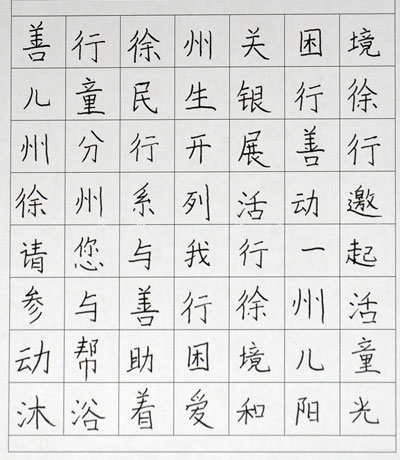 善行徐州关困境
儿童民生银行徐
州分行开展善行
徐州系列活动邀
请您与我行一起
参与善行徐州活
动帮助困境儿童
沐浴着爱和阳光